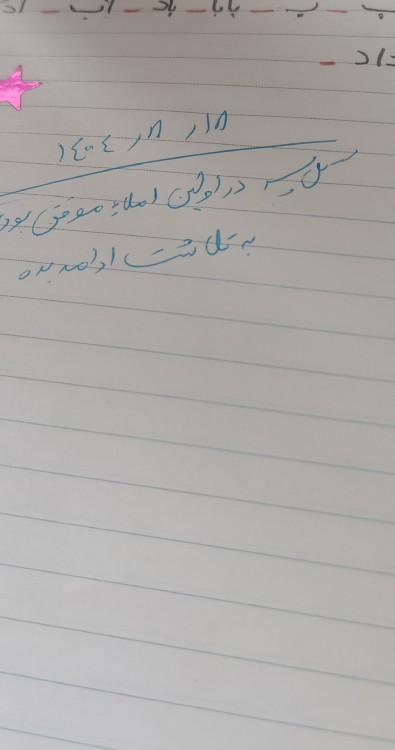 پ - بابا - باد - آب -
داد -
۱۴۰۴ / ۸ / ۱۸
در اولین املاء موفق بود
به تلاشت ادامه بده